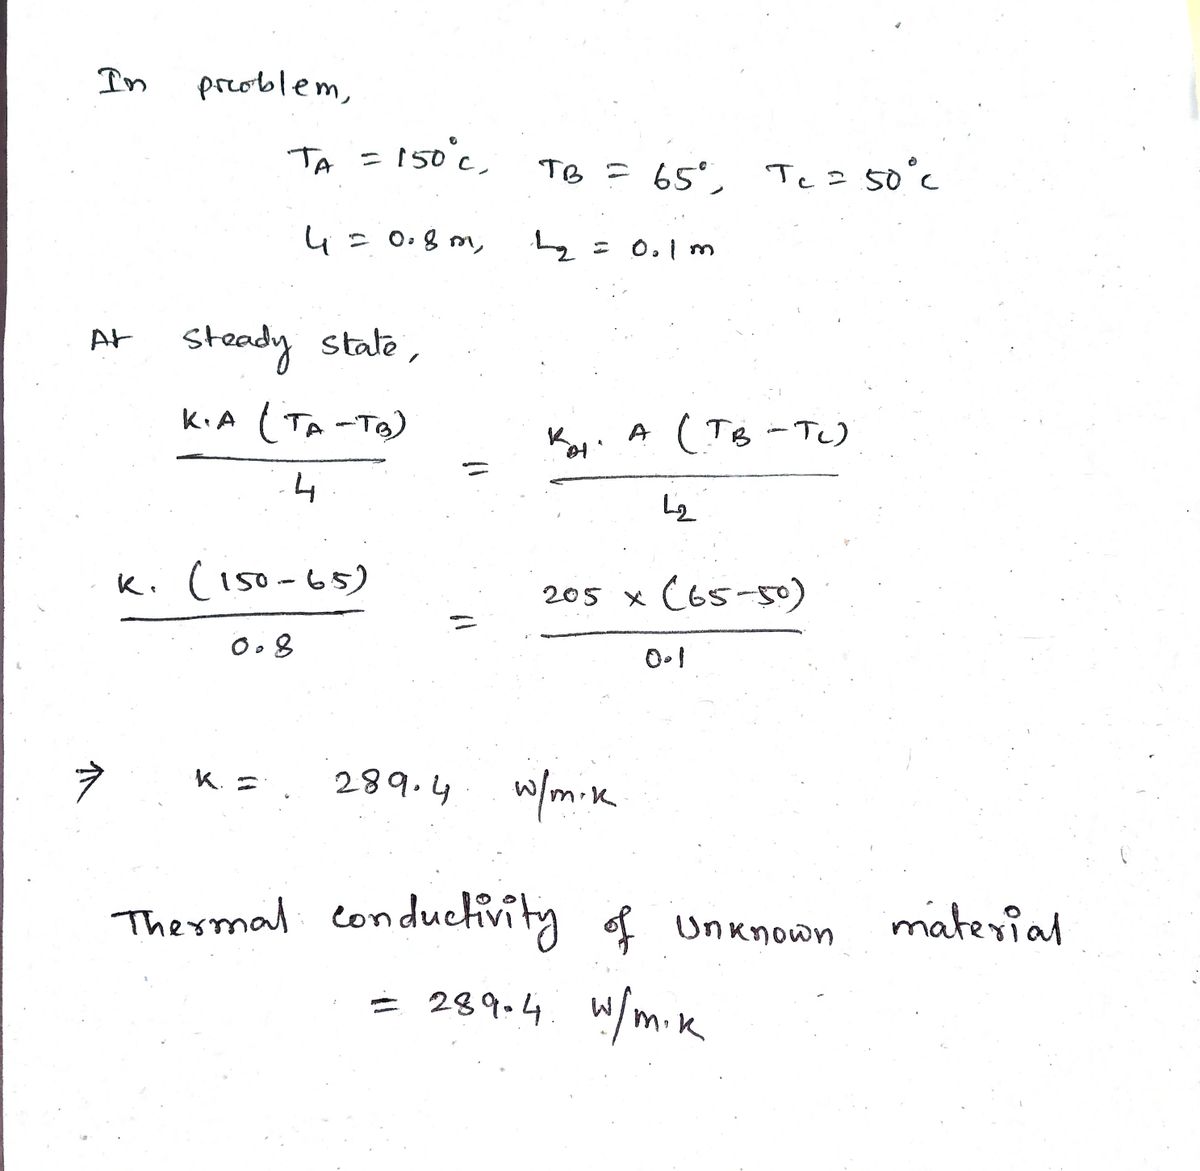 In problem,
TA = 150°c, TB = 65°, Tc = 50°c
L1 = 0.8 m, L2 = 0.1 m
At steady state,
K.A (TA - TB) / L1 = KAl. A (TB - Tc) / L2
K. (150 - 65) / 0.8 = 205 × (65-50) / 0.1
⇒ K = 289.4 W/m.K
Thermal conductivity of Unknown material
= 289.4 W/m.K